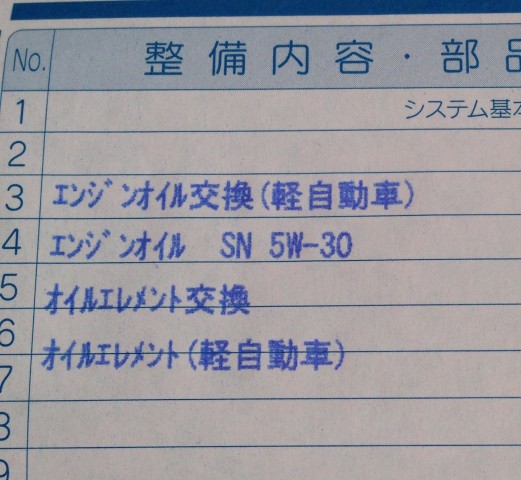 No. 整備内容・部品
1 システム基本
2
3 ｴﾝｼﾞﾝｵｲﾙ交換(軽自動車)
4 ｴﾝｼﾞﾝｵｲﾙ SN 5W-30
5 ｵｲﾙｴﾚﾒﾝﾄ交換
6 ｵｲﾙｴﾚﾒﾝﾄ(軽自動車)
7
8
9